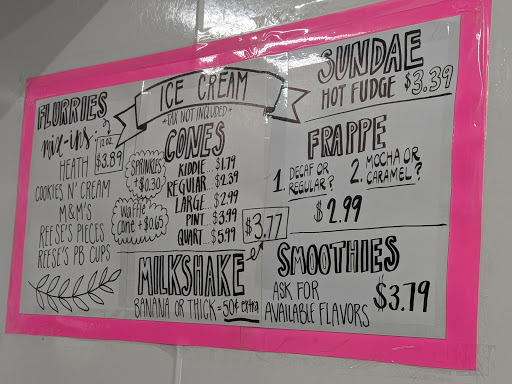 FLURRIES
mix-ins
12 OZ.
$3.89
HEATH
COOKIES N' CREAM
M&M'S
REESE'S PIECES
REESE'S PB CUPS
ICE CREAM
*TAX NOT INCLUDED*
CONES
SPRINKLES
+$0.30
Waffle
cone +$0.65
KIDDIE... $1.79
REGULAR... $2.39
LARGE... $2.99
PINT... $3.99
QUART... $5.99
$3.77
MILKSHAKE
BANANA OR THICK = 50¢ extra
SUNDAE
HOT FUDGE $3.39
FRAPPE
1. DECAF OR
REGULAR?
2. MOCHA OR
CARAMEL?
$2.99
SMOOTHIES
ASK FOR
AVAILABLE FLAVORS
$3.79